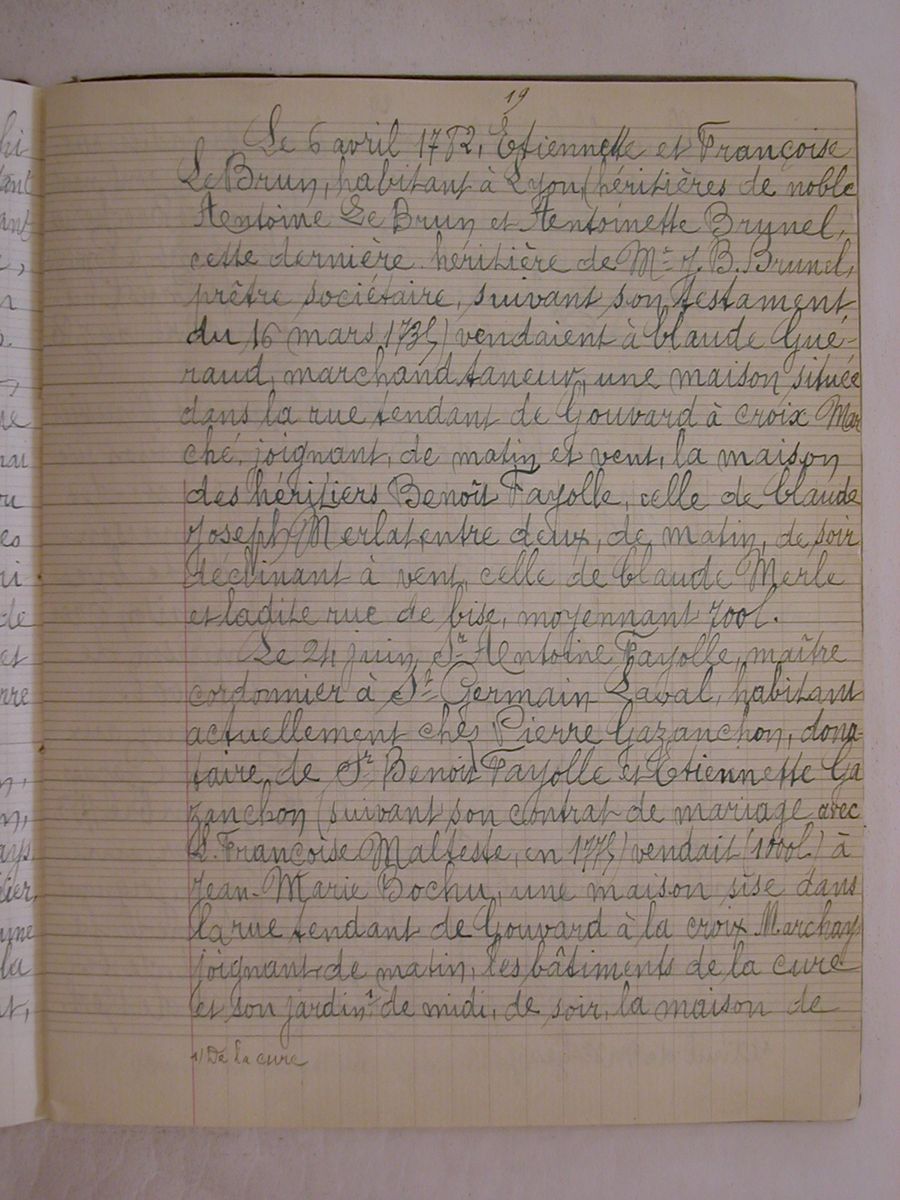 19
Le 6 avril 1782, Etiennette et Françoise
Le Brun, habitant à Lyon (héritières de noble
Antoine Le Brun et Antoinette Brunel,
cette dernière héritière de Mre J. B. Brunel,
prêtre sociétaire, suivant son testament
du 16 mars 1735) vendaient à Claude Gué-
raud, marchand taneur, une maison située
dans la rue tendant de Gouvard à croix Mar
ché, joignant, de matin et vent, la maison
des héritiers Benoît Fayolle, celle de Claude
Joseph Merlat entre deux, de matin, de soir
déclinant à vent, celle de Claude Merle
et ladite rue de bise, moyennant 700l.
Le 24 juin, Sr Antoine Fayolle, maître
cordonnier à St Germain Laval, habitant
actuellement chés Pierre Gazanchon, dona-
taire, de Sr Benoit Fayolle et Etiennette Ga
zanchon (suivant son contrat de mariage avec
S. Françoise Malteste, en 1775) vendait (1000l.) à
Jean-Marie Bochu, une maison sise dans
la rue tendant de Gouvard à la croix Marchay,
joignant de matin, les bâtiments de la cure
et son jardin 1) de midi, de soir, la maison de
1) De la cure